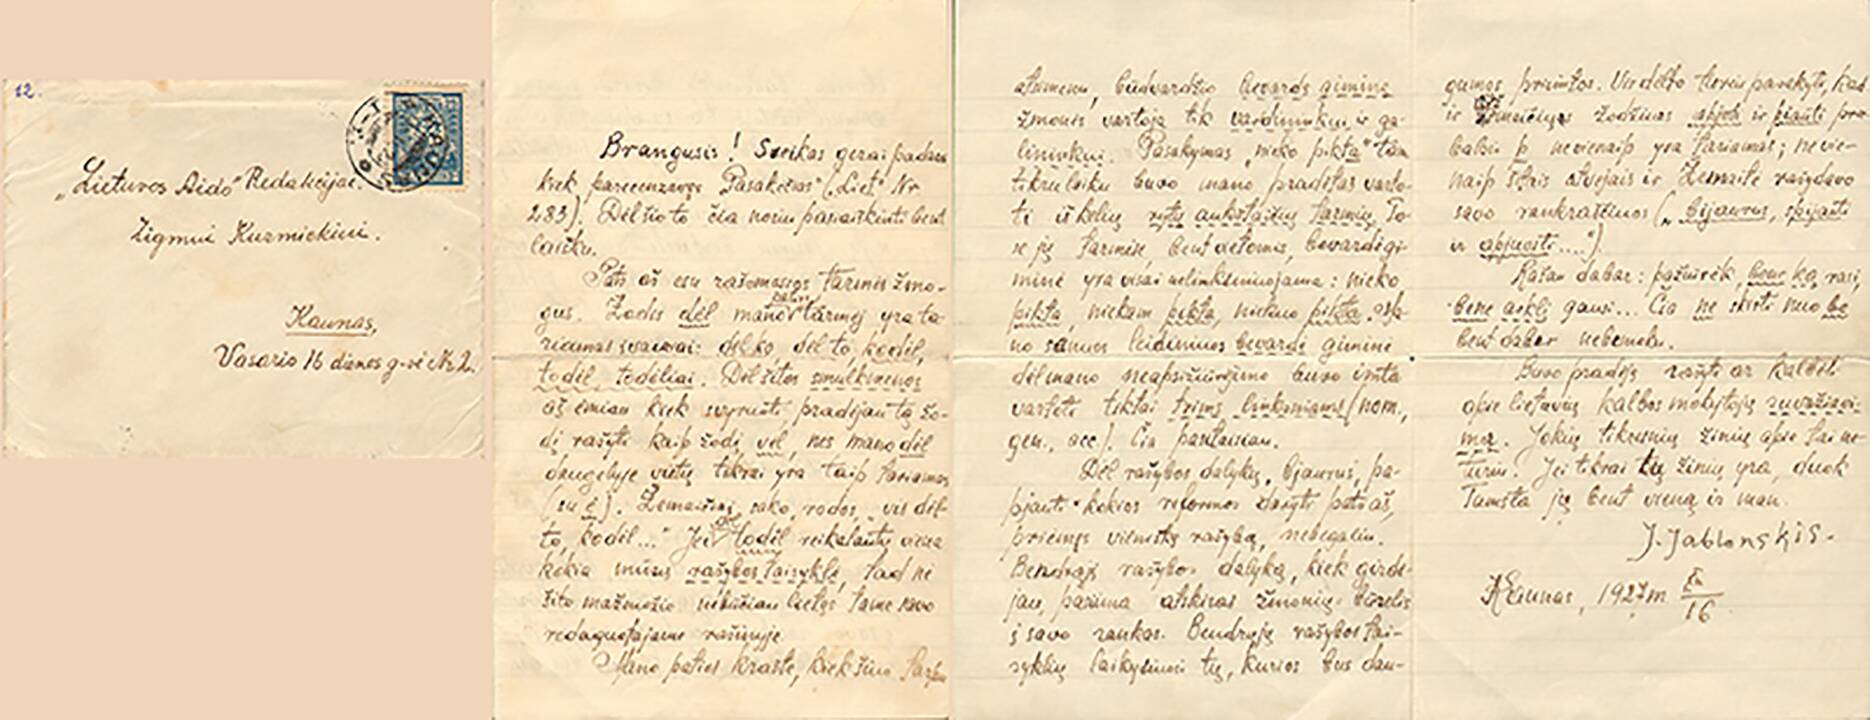 12.
„Lietuvos Aido“ Redakcijai.
Zigmui Kuzmickiui.
Kaunas,
Vasario 16 dienos g-vė Nr 2.
Brangusis! Sveikas gerai padarei
kiek parecenzavęs Pasakėčias („Liet“ Nr
283). Dėl šio to čia noriu pasiaiškinti bent
laišku.
Pats aš esu rašomosios tarmės žmo-
gus. Žodis dėl mano tarmėj yra ta-
riamas įvairiai: dėl ko, dėl to, kodėl,
todėl, todėliai. Dėl šitos smulkmenos
aš ėmiau kiek svyruoti, pradėjau tą žo-
dį rašyti kaip žodį vėl, nes mano dėl
daugelyje vietų tikrai yra taip tariamas
(su ė). Žemaičiai, sako, rodos, „vis dėl-
to, kodėl...“ Jei todėl reikalautų viena
kokia mūsų rašybos taisyklė, tad nė
šito mažmožio nebūčiau lietęs tame savo
redaguotajame rašinyje.
Mano paties krašte, kiek žinau
atsimenu, būdvardžio bevardę giminę
žmonės vartoja tik vardininku ir ga-
lininku. Pasakymas „nieko pikta“ tam
tikru laiku buvo mano pradėtas varto-
ti iš kelių rytų aukštaičių tarmių. To-
se jų tarmėse, bent vietomis, bevardė gi-
minė yra visai nelinksniuojama: nieko
pikta, niekam pikta, niekuo pikta.
no leidiniuos bevardė giminė
dėl mano neapsižiūrėjimo buvo imta
vartoti tiktai trims linksniams (nom.,
gen., acc). Čia pantaisiau.
Dėl rašybos dalykų „bjaurus, pa-
pjauti“ kokios reformos daryti pats aš,
priėmęs vilniškę rašybą, nebegaliu.
Bendrąjį rašybos dalyką, kiek girdė-
jau, paėmė atskiras žmonių būrelis
į savo rankas. Bendrųjų rašybos tai-
syklių laikysimės tų, kurios bus dau-
gumos priimtos. Vis dėlto turiu pasakyti, kad
ir žodžiuos ir pjauti pra
balsis p nevienaip yra tariamas; nevie-
naip šitais atvejais ir Žemaitė rašydavo
savo rankraščiuos („bijaurus, spijauti
ir apjuosti....“)
Rašau dabar: pažiūrėk, bene ką rasi,
bene arklį gausi... Čia ne skirti nuo be
bent dabar nebemoku.
Buvo pradėję rašyti ar kalbėti
apie lietuvių kalbos mokytojų suvažiavi-
mą. Jokių tikresnių žinių apie tai ne-
turiu. Jei tikrai tų žinių yra, duok
Tamsta jų bent vieną ir man.
J. Jablonskis.
Kaunas, 1927m X/16